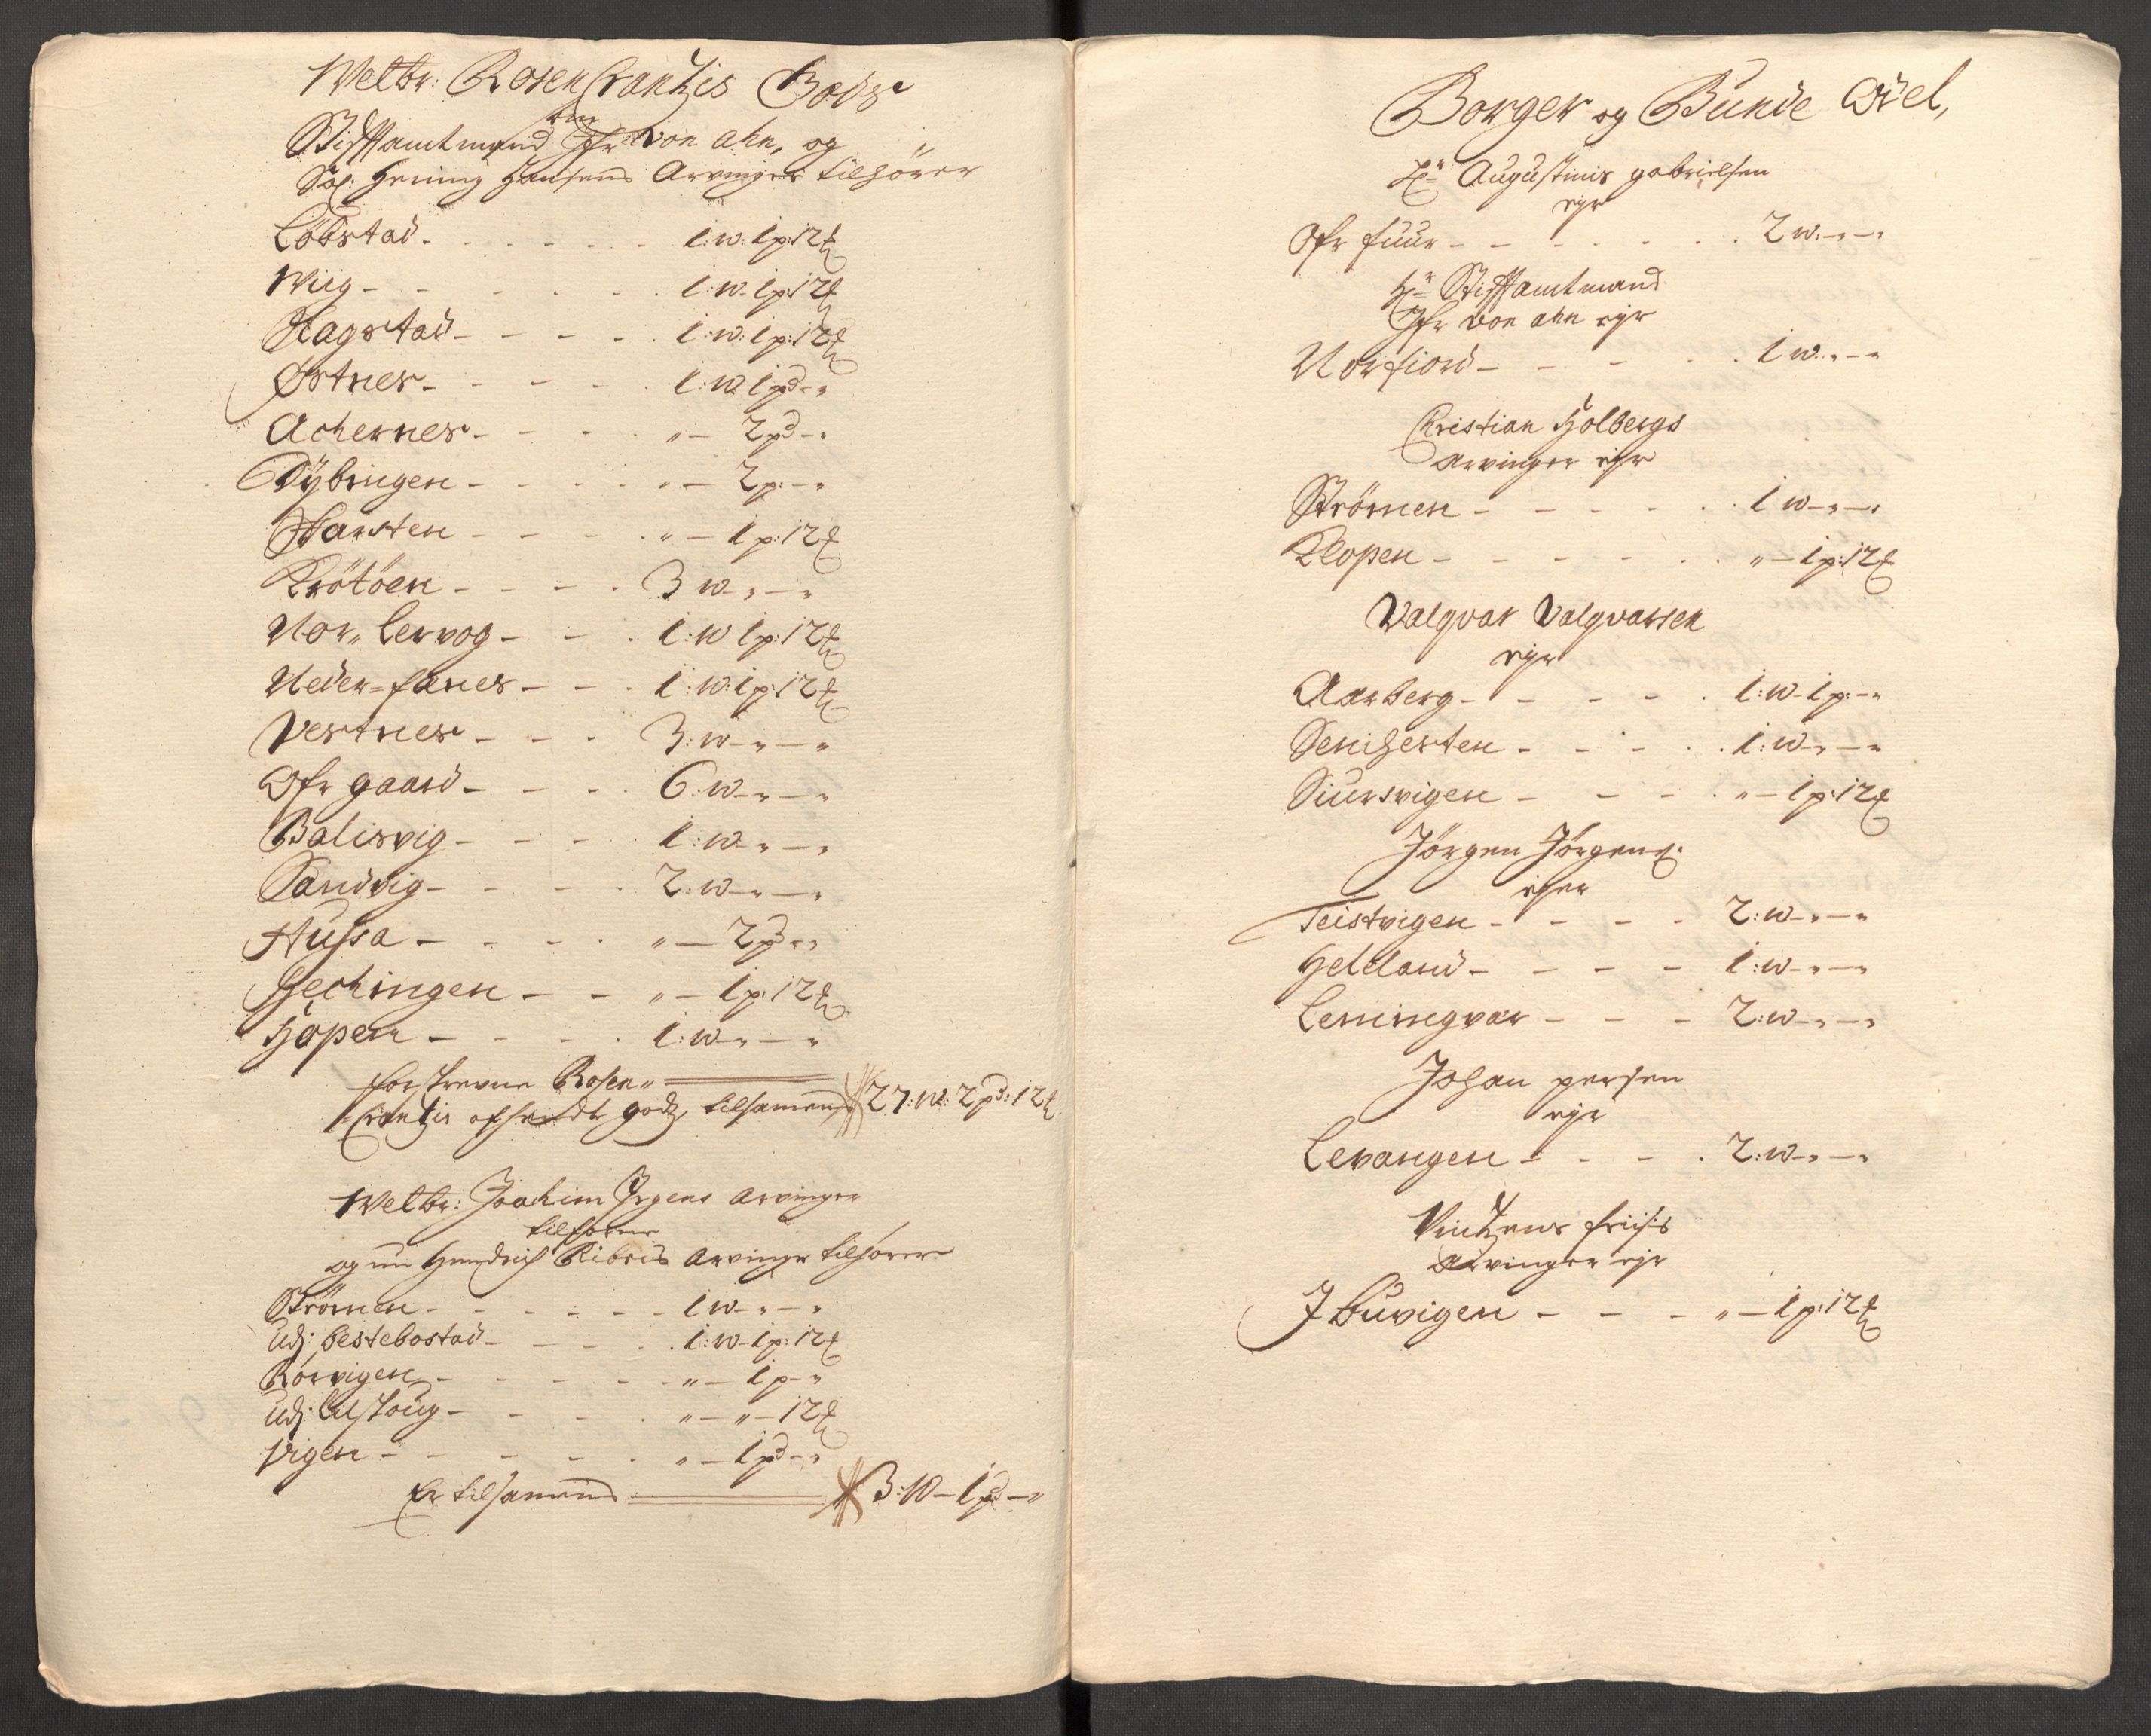 Welbr: Rosen Crantzis Gods
Stifftamtmand Ifr von ahn, og
Sal: Hening Hansens Arvinger tilhörer
Löbstad - - - 1:w:1p:12℔
Wiig - - - 1:w-1p:12℔
Hagstad - - - 1:w:1p:12℔
Østnes - - - 1:w 1pd-"
Achernes - - - "-2pd-"
Dybingen - - - "-2p:-"
Harsten - - - "-1p:12℔
Krötöen - - - 3 w-"-"
Nor„ Lervog - - - 1:w 1p:12℔
Neder=fanes - - - 1:w:1p:12℔
Vestnes - - - 3:w-"-"
Ofr gaard - - - 6:w-"-"
Balisvig - - - 1:w-"-"
Sandvig - - - 2:w-"-"
Hussa - - - "-2pd-"
Hechingen - - - "-1p:12℔
Hopen - - - 1:w-"-"
forschrevne Rosen„
Crantzis godtz, tilsamens 27:w:2pd:12℔
Welbr: Joachim Irgens arvinger
tilforne
og nu Hendrich Ribers arvinger tilhörer
Strömen - - - 1w-"-"
Udj: bestebostad - - - 1:w-1p:12℔
Rörvigen - - - "-1p-"
Udj: - - - "-"-12℔
Vigen - - - "-1pd-"
Er tilsamens 3:w-1pd-"
Borger og Bunde Odel,
Hr Augustinis gabrielsen
ejer
Ofr fuur - - - 2w-"-"
Hr Stifftamtmand
Ifr von ahn ejer
Norfiord - - - 1w-"-"
Christian Holbergs
arvinger ejer
Strömen - - - 1w-"-"
Klopen - - - "-1p:12℔
Valgvar Valgvarsen
ejer
Aarberg - - - 1:w-1p:-"
Senihesten - - - 1:w-"-"
Siursvigen - - - "-1p:12℔
Jörgen Jörgens:
ejer
Teistvigen - - - 2:w-"-"
Helland - - - 1:w-"-"
Lemingvær - - - 2:w-"-"
Johan persen
ejer
Levangen - - - 2:w-"-"
Vintzens friis:
arvinger ejer
I buvigen - - - "-1p:12℔